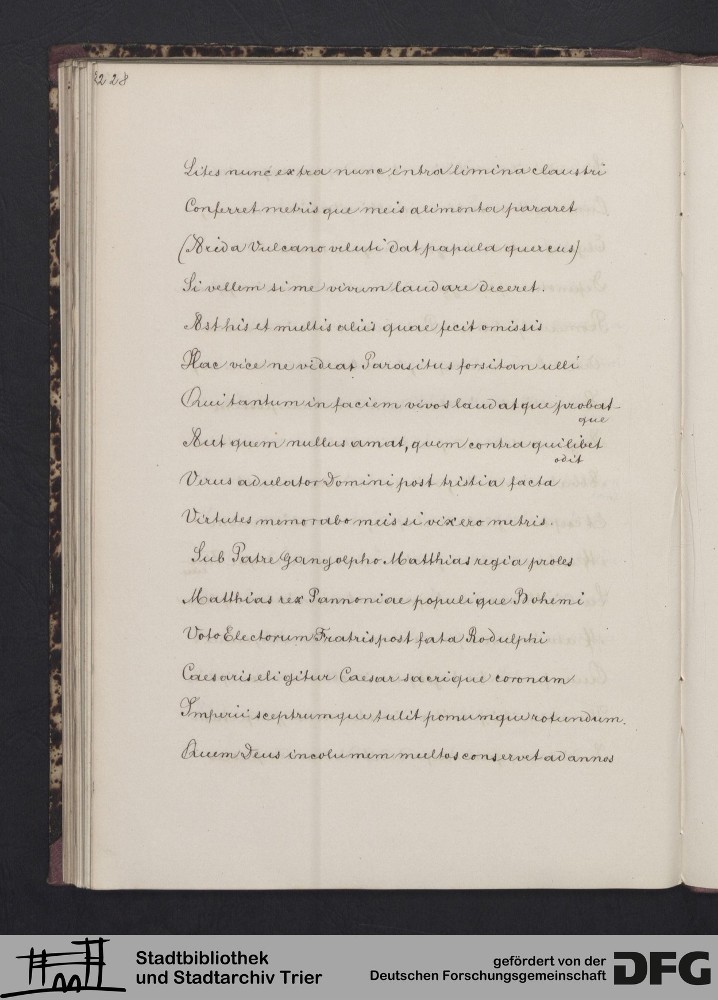 228
Lites nunc extra nunc intra limina claustri
Conferret metrisque meis alimenta pararet
(Arida Vulcano veluti dat papula quercus)
Si vellem si me vivum laudare deceret.
Ast his et multis aliis quae fecit omissis
Hac vice ne videar Parasitus forsitan ulli
Qui tantum in faciem vivos laudat que probat-
que
Aut quem nullus amat, quem contra quilibet
odit
Verus adulator Domini post tristia facta
Virtutes memorabo meis si vixero metris.
Sub Patre Gangolpho Matthias regia proles
Matthias rex Pannoniae populique Bohemi
Voto Electorum Fratris post fata Rodulphi
Caesaris eligitur Caesar sacrique coronam
Imperii sceptrumque tulit pomumque rotundum.
Quem Deus incolumem multos conservet ad annos
Stadtbibliothek
und Stadtarchiv Trier
gefördert von der
Deutschen Forschungsgemeinschaft
DFG